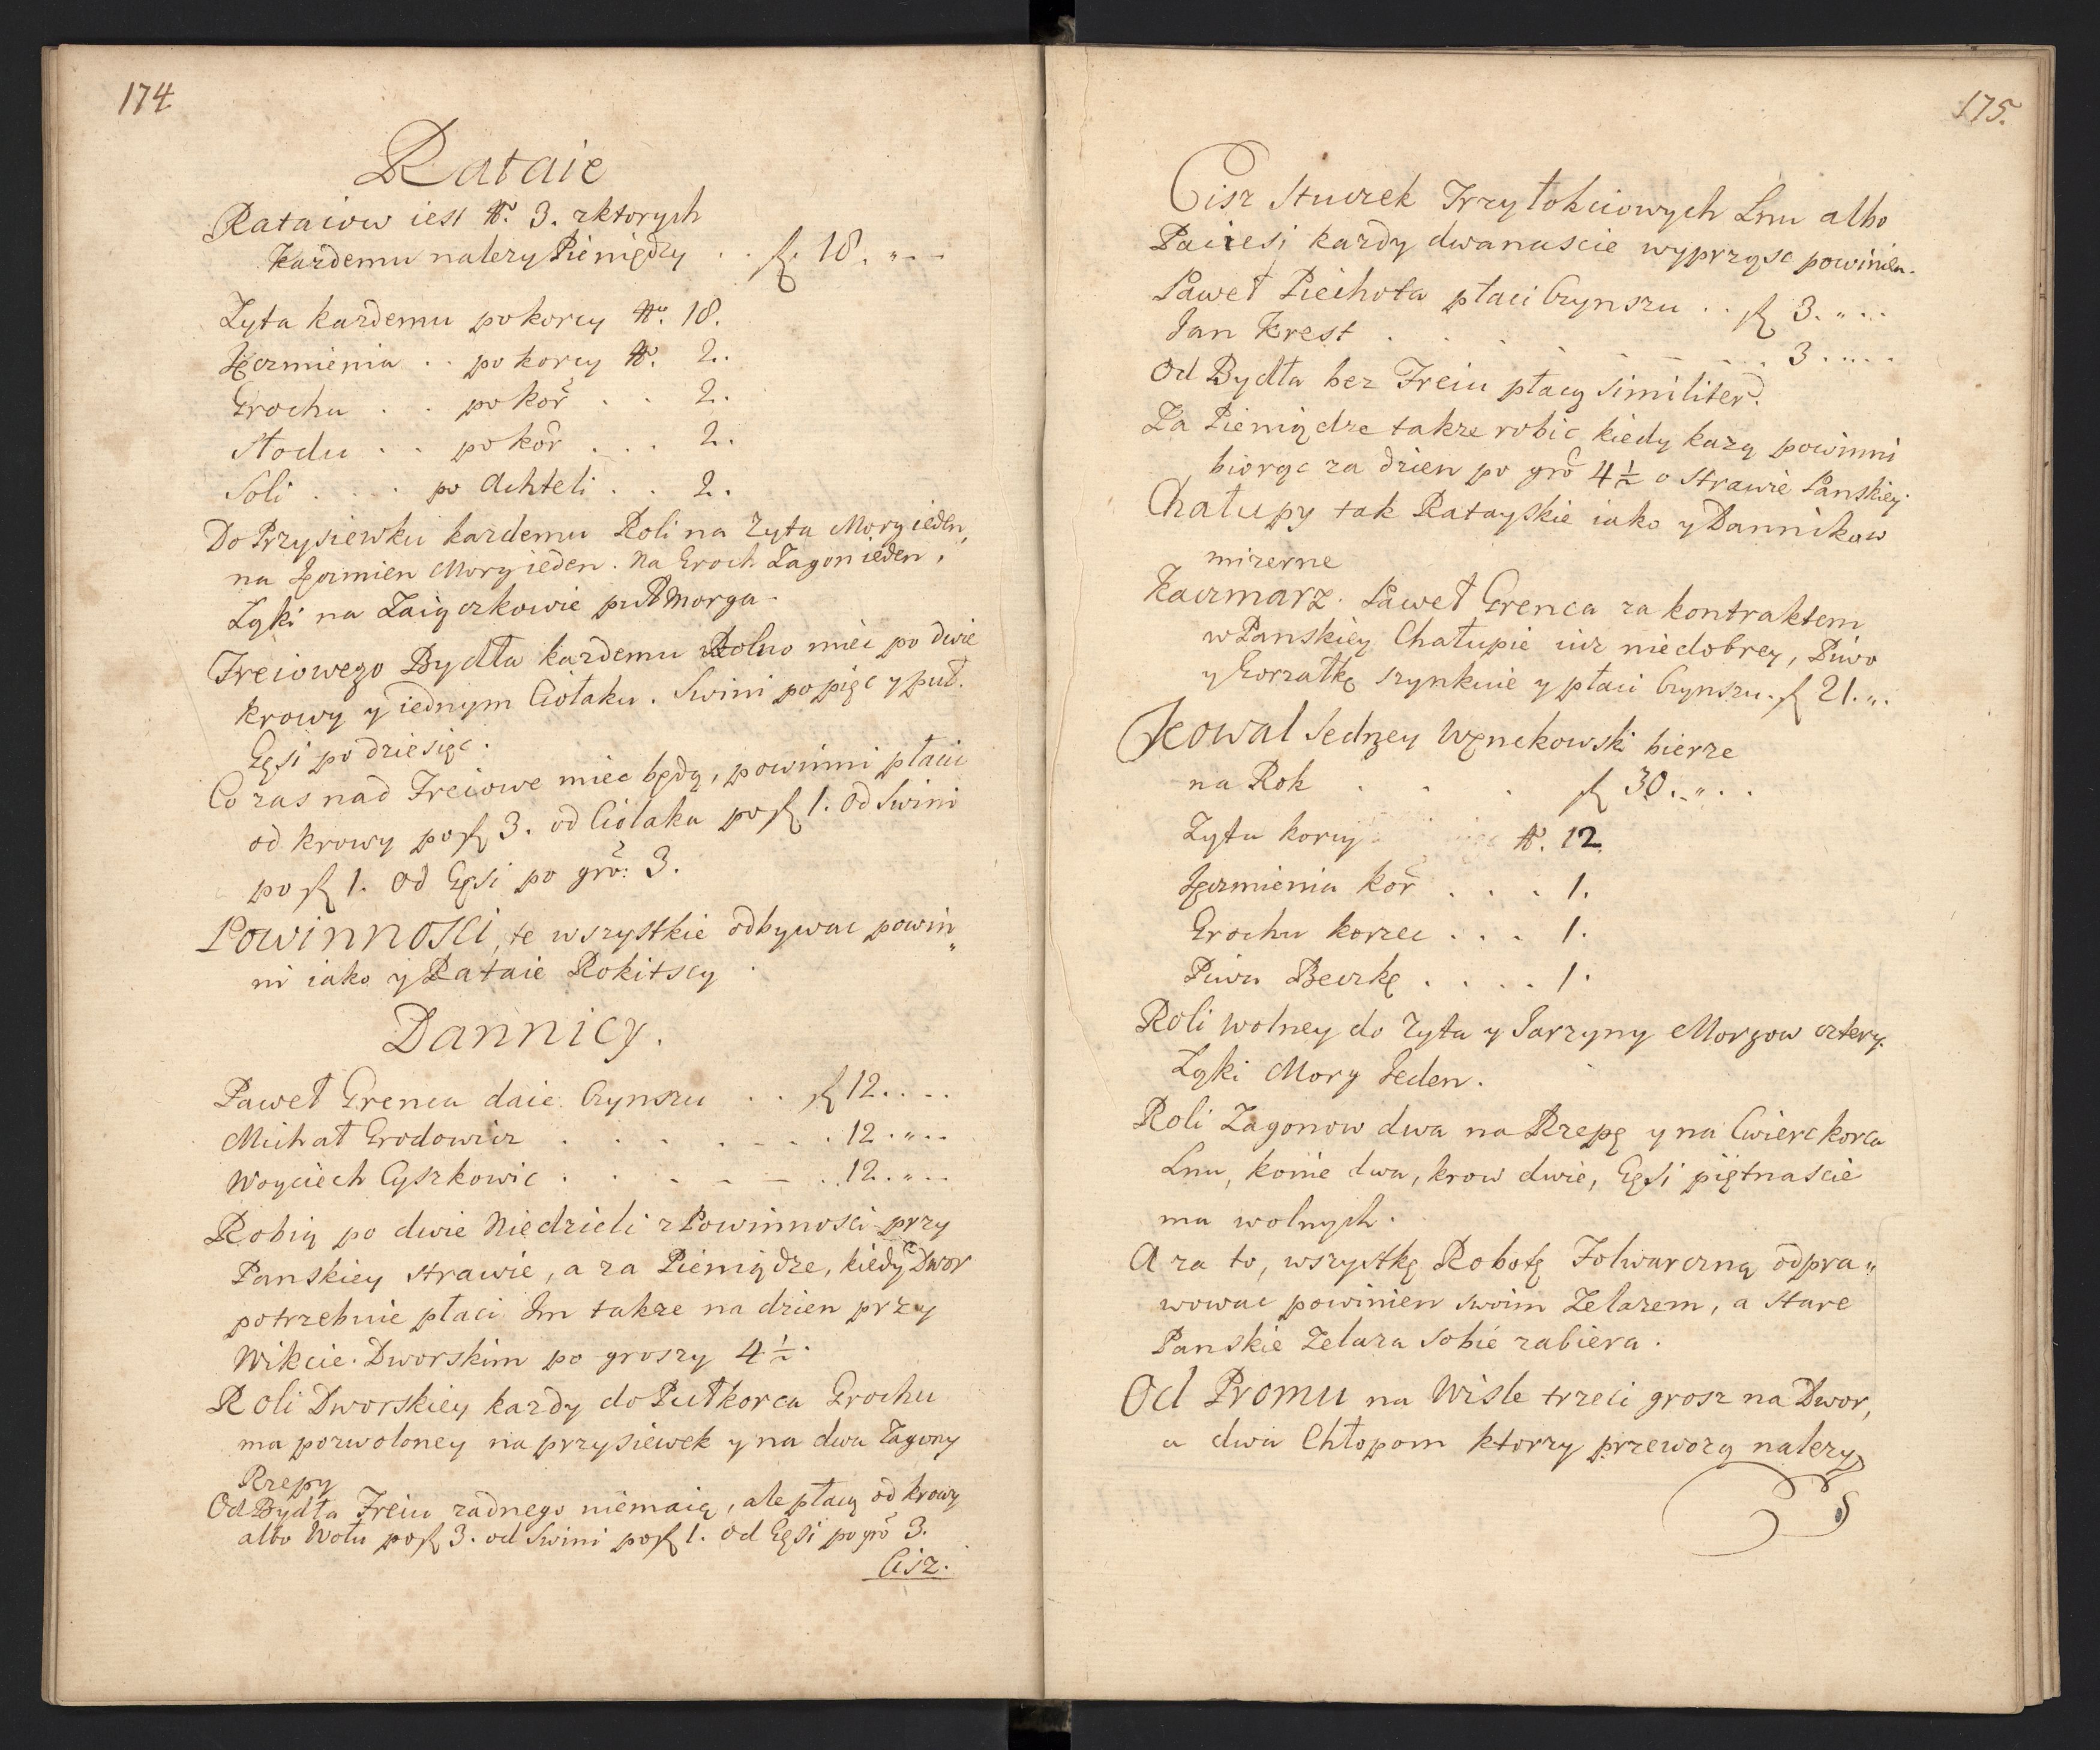 174
Rataie
Rataiow iest N. 3. zktorych
Kazdemu nalezy Pieniędzy . . fl. 18. " - -
Zyta kazdemu po korcy N. 18.
Jęczmienia . . po korcy N. 2..
Grochu . . po kor . . 2.
Słodu . . po kor . . . 2.
Soli . . . . po Achteli . . 2.
Do Przysiewku kazdemu Roli na Zyta Morg ieden,
na Jęczmien Morg ieden. Na Groch Zagon ieden.
Łąki na Zaiączkowie puł Morga.
Freiowego Bydła kazdemu Wolno miec po dwie
krowy y iednym Ciołaku. Swini po pięc y puł.
Gęsi po dziesięc.
Co zas nad Freiowe miec będą, powinni płacic
od krowy po fl 3. od Ciolaka po fl 1. od Swini
po fl 1. od Gęsi po gro: 3.
Powinnosci, te wszystkie odbywac powin"
ni iako y Rataie Rokitscy.
Dannicy.
Paweł Grenca daie Czynszu . . fl 12. . . .
Michał Grodowicz . . . . - - . 12. " . .
Woyciech Cyszkowic . . . - - - . 12. " . .
Robią po dwie Niedzieli z Powinnosci przy
Panskiey strawie, a za Pieniądze, kiedy Dwor
potrzebuie płaci Im takze na dzien przy
Wikcie Dworskim po groszy 4 1/2.
Roli Dworskiey kazdy do Puł korca Grochu
ma pozwoloney na przysiewek y na dwa Zagony
Rzepy
Od Bydła Freiu zadnego niemaią, ale płacą od krowy
albo Wołu po fl 3. od Swini po fl 1. od Gęsi po gro 3.
Cisz.
175.
Cisz Stuczek Trzyłokciowych Lnu albo
Paczesi kazdy dwanascie wyprzysc powinien.
Paweł Piechota płaci Czynszu . . fl 3. " . .
Jan Krest . . . . . - - . . . 3. " . .
Od Bydła bez Freiu płacą Similiter.
Za Pieniądze takze robic kiedy kazą powinni
biorąc za dzien po gro 4 1/2 o Strawie Panskiey.
Chałupy tak Batayskie iako y Dannikow
mizerne
Kaczmarz. Paweł Grenca za kontraktem
w Panskiey Chałupie iuz niedobrey, Piwo
y Gorzałkę szynkuie y płaci Czynszu. fl 21. " .
Kowal Jedrzey Węnekowski bierze
na Rok . . . fl 30. " . .
Zyta korcy N. 12.
Jęczmienia kor . . . 1.
Grochu korzec . . . 1.
Piwa Beczkę . . . . 1.
Roli wolney do Zyta y Jarzyny Morgow cztery.
Łąki Morg Jeden.
Roli Zagonow dwa na Rzepę y na Cwierc korca
Lnu, konie dwa, krow dwie, Gęsi piętnascie
ma wolnych.
A za to, wszystkę Robotę Folwarczną odpra"
wowac powinien swoim Zelazem, a stare
Panskie Zelaza Sobie zabiera.
Od Promu na Wisle trzeci grosz na Dwor,
a dwa Chłopom ktorzy przewozą nalezy